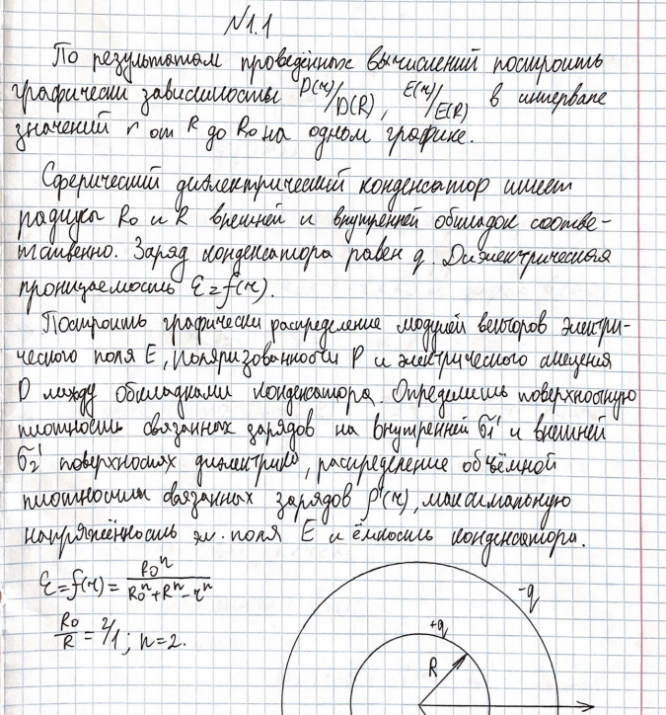 №1.1
По результатам проведённых вычислений построить
графически зависимости D(r)/D(R), E(r)/E(R) в интервале
значений r от R до R₀ на одном графике.
Сферический диэлектрический конденсатор имеет
радиусы R₀ и R внешней и внутренней обкладок соотве-
тственно. Заряд конденсатора равен q. Диэлектрическая
проницаемость ε=f(r).
Построить графически распределение модулей векторов электри-
ческого поля E, поляризованности P и электрического смещения
D между обкладками конденсатора. Определить поверхностную
плотность связанных зарядов на внутренней σ₁' и внешней
σ₂' поверхностях диэлектрика, распределение объёмной
плотности связанных зарядов ρ'(r), максимальную
напряжённость эл. поля E и ёмкость конденсатора.
ε=f(r)= R₀ⁿ/(R₀ⁿ+Rⁿ-rⁿ)
R₀/R = 2/1; n=2.
-q
+q
R